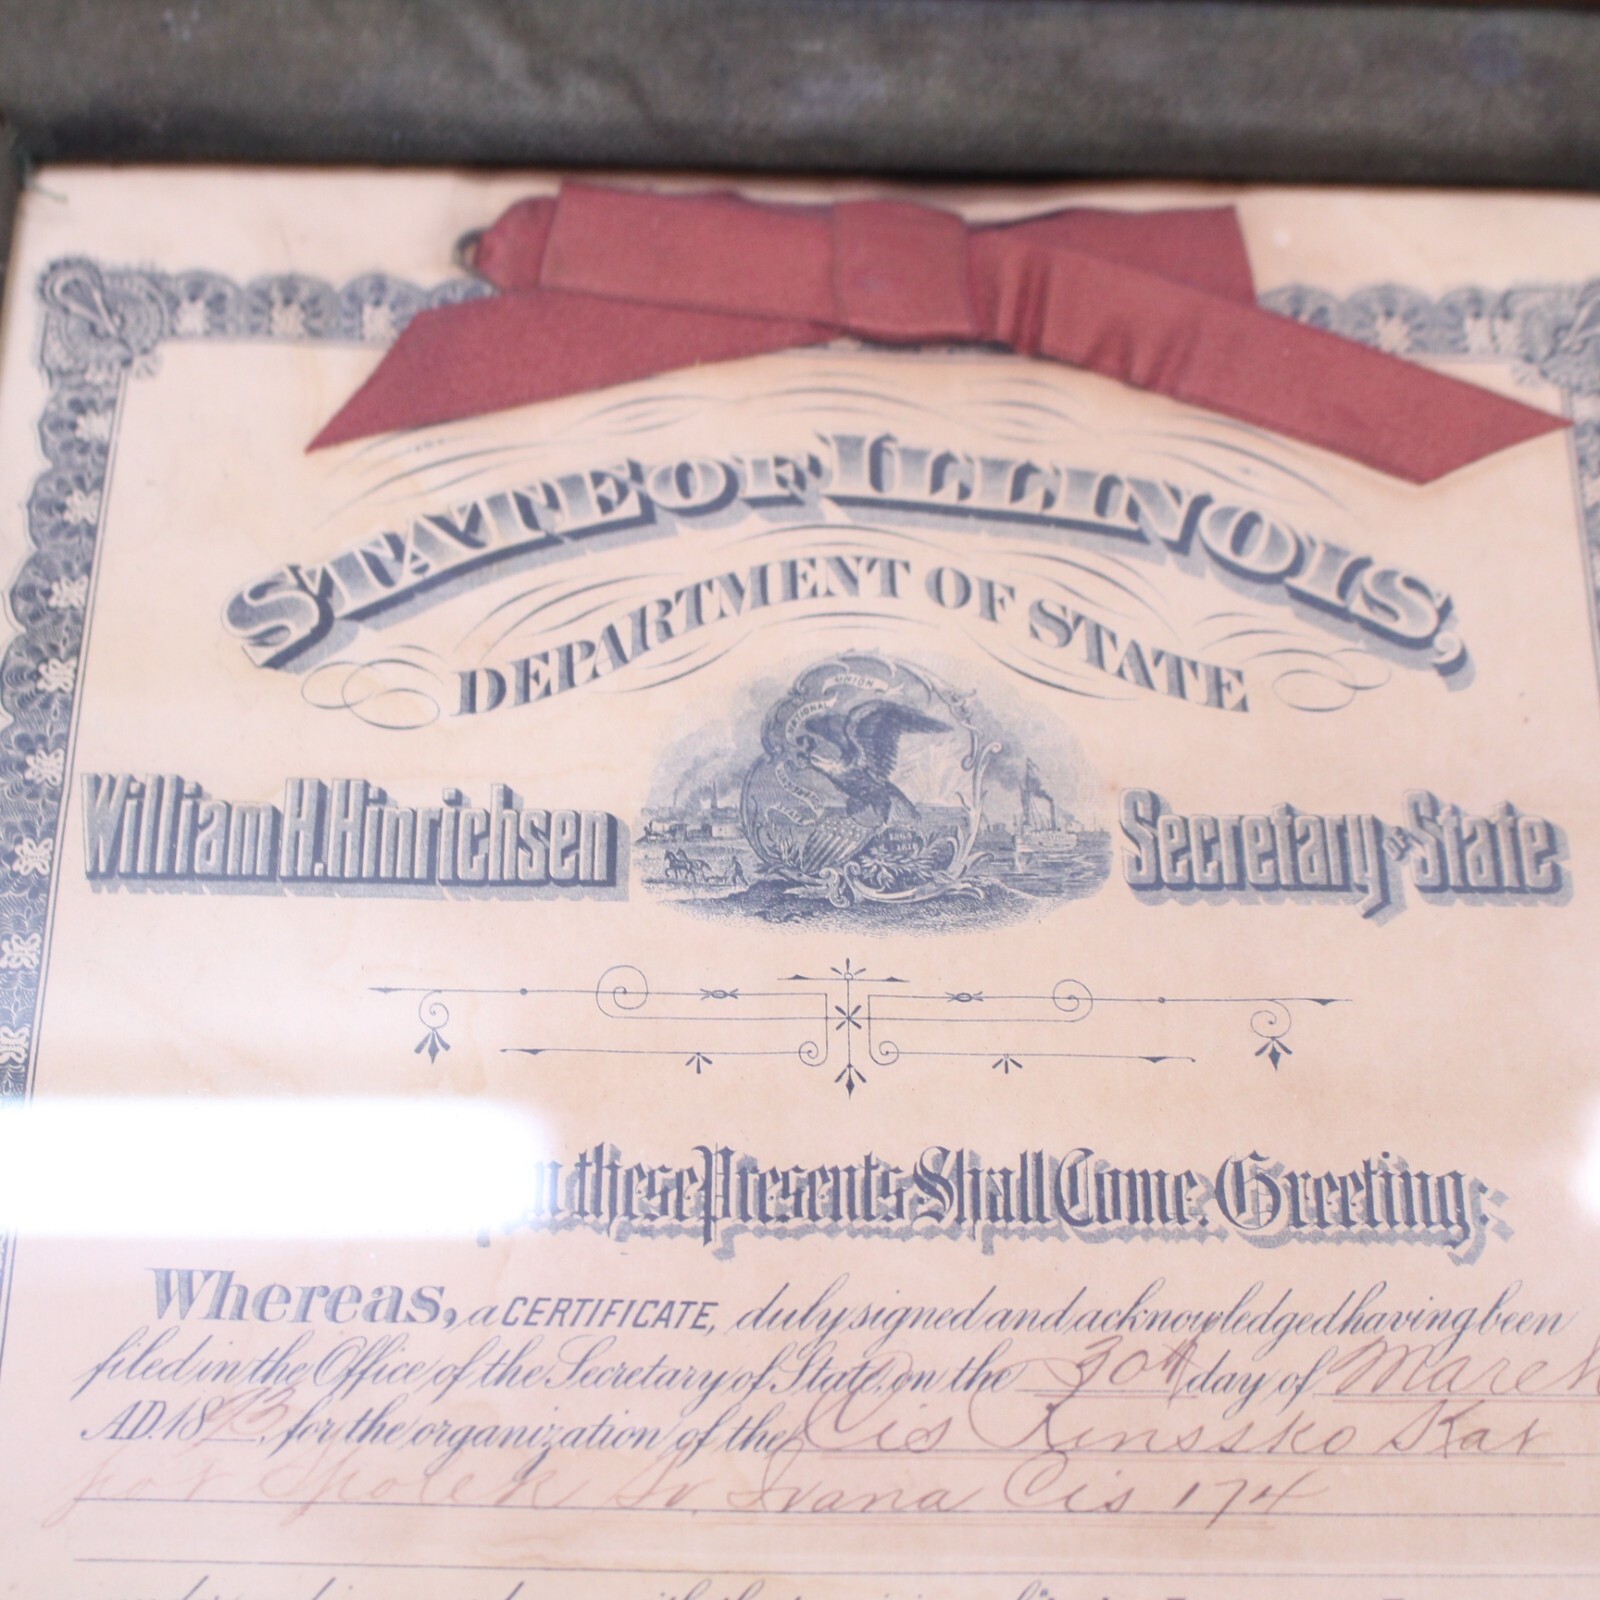 STATE OF ILLINOIS,
DEPARTMENT OF STATE
NATIONAL UNION
William H. Hinrichsen Secretary of State
these Presents Shall Come. Greeting:
Whereas, a CERTIFICATE, duly signed and acknowledged having been
filed in the Office of the Secretary of State, on the 30th day of March
A.D. 1893, for the organization of the Cis Rimssko Kat
pot Spolek Sv. Ivana Cis 174